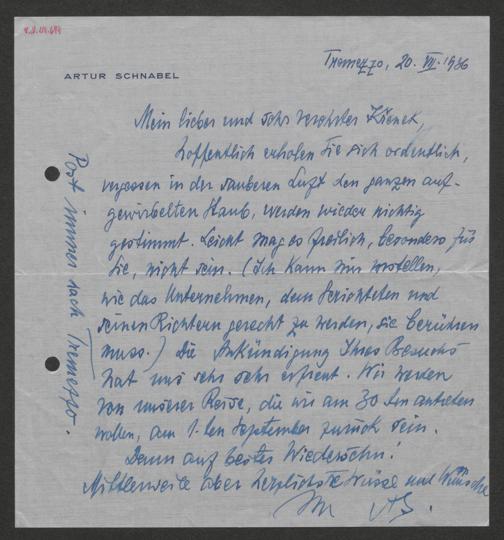 ARTUR SCHNABEL
Tremezzo, 20. VII. 1936
Mein lieber und sehr verehrter Křenek,
hoffentlich erholen Sie sich ordentlich,
vergessen in der sauberen Luft den ganzen auf-
gewirbelten Staub, werden wieder richtig
gestimmt. Leicht mag es freilich, besonders für
Sie, nicht sein. (Ich kann mir vorstellen,
wie das Unternehmen, dem Gerichteten und
seinen Richtern gerecht zu werden, Sie berühren
muss.) Die Ankündigung Ihres Besuchs
hat uns sehr sehr erfreut. Wir werden
von unserer Reise, die wir am 30 ten antreten
wollen, am 1. ten September zurück sein.
Denn auf bestes Wiedersehn!
Mittlerweile aber herzlichste Grüsse und Wünsche
Ihr AS.
Post immer nach Tremezzo.